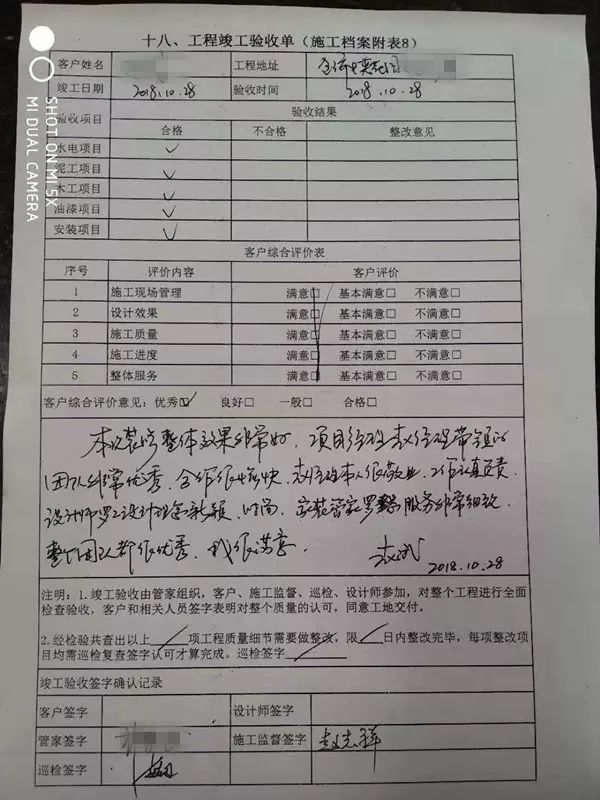 十八、工程竣工验收单（施工档案附表8）
客户姓名 工程地址
竣工日期 2018.10.28 验收时间 2018.10.28
验收项目 验收结果
合格 不合格 整改意见
水电项目 ✓
泥工项目 ✓
木工项目 ✓
油漆项目 ✓
安装项目 ✓
客户综合评价表
序号 评价内容 客户评价
1 施工现场管理 满意□ 基本满意□ 不满意□
2 设计效果 满意□ 基本满意□ 不满意□
3 施工质量 满意□ 基本满意□ 不满意□
4 施工进度 满意□ 基本满意□ 不满意□
5 整体服务 满意□ 基本满意□ 不满意□
客户综合评价意见：优秀☑ 良好□ 一般□ 合格□
本次装修整体效果非常好，项目经理赵经理带领的
团队非常优秀，合作很愉快，赵经理本人很敬业，工作认真负责，
设计师罗工设计理念新颖，时尚，家装管家罗 服务非常细致，
整个团队都很优秀，我很满意
2018.10.28
注明：1.竣工验收由管家组织，客户、施工监督、巡检、设计师参加，对整个工程进行全面
检查验收，客户和相关人员签字表明对整个质量的认可，同意工地交付。
2.经检验共查出以上 项工程质量细节需要做整改，限 日内整改完毕，每项整改项
目均需巡检复查签字认可才算完成。巡检签字
竣工验收签字确认记录
客户签字 设计师签字
管家签字 施工监督签字 赵志祥
巡检签字
SHOT ON MI 5X
MI DUAL CAMERA